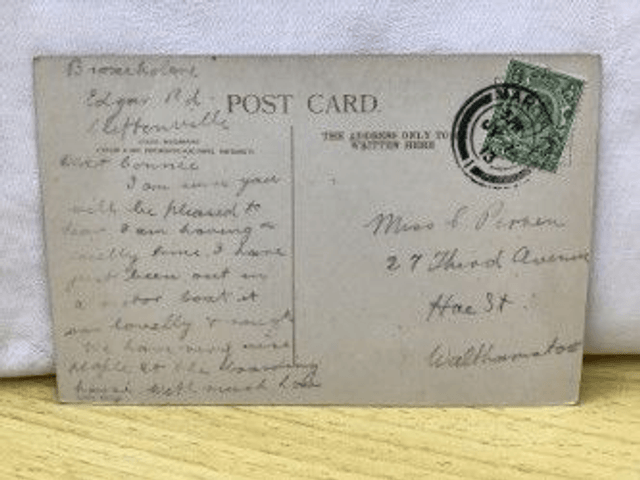 Edgar Rd
Cliftonville
POST CARD.
THE ADDRESS ONLY TO
WRITTEN HERE
MAR
Dear Connie
I am sure you
will be pleased to
hear I am having a
lovelly time I have
just been out in
a motor boat it
was lovelly & rough
We have very nice
people at the Boarding
house with much love
Miss C
27 Third Avenue
Hoe St
Walthamstow